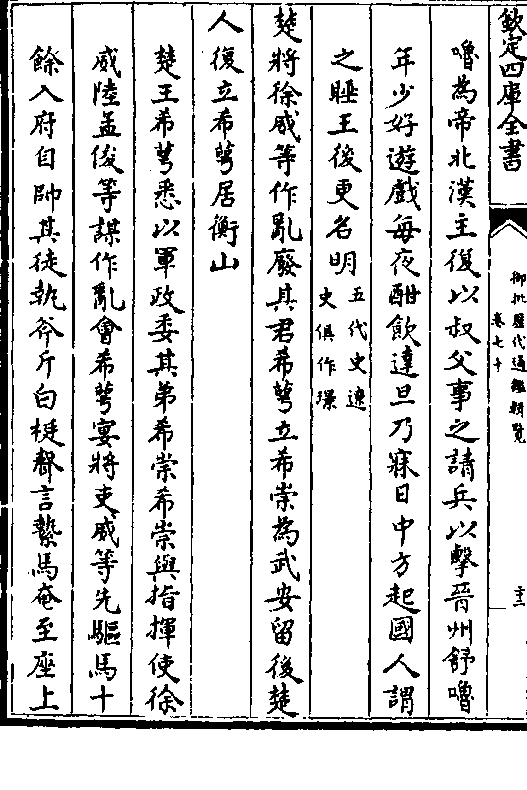 欽定四庫全書
御批歴代通鑑輯覽
卷七十
嚕為帝北漢主復以叔父事之請兵以擊晉州舒嚕
年少好遊戲每夜酣飲達旦乃寐日中方起國人謂
之睡王後更名明五代史遼
史俱作璟
楚將徐威等作亂廢其君希萼立希崇為武安留後楚
人復立希萼居衡山
楚王希萼悉以軍政委其弟希崇希崇與指揮使徐
威陸孟俊等謀作亂會希萼宴將吏威等先驅馬十
餘入府自帥其徒執斧斤白梃聲言縶馬奄至座上